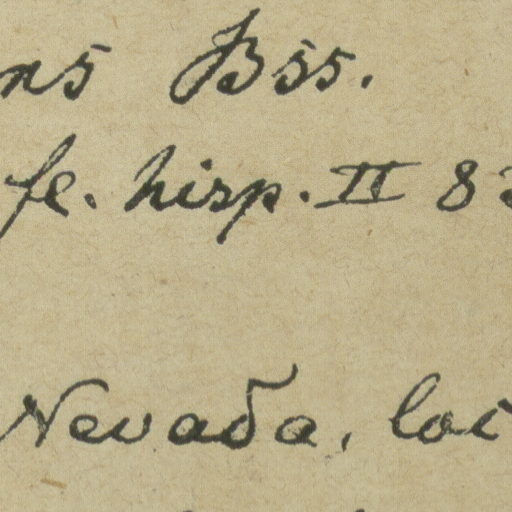 ns Bss.
fl. hisp. II 8
Nevada, loi